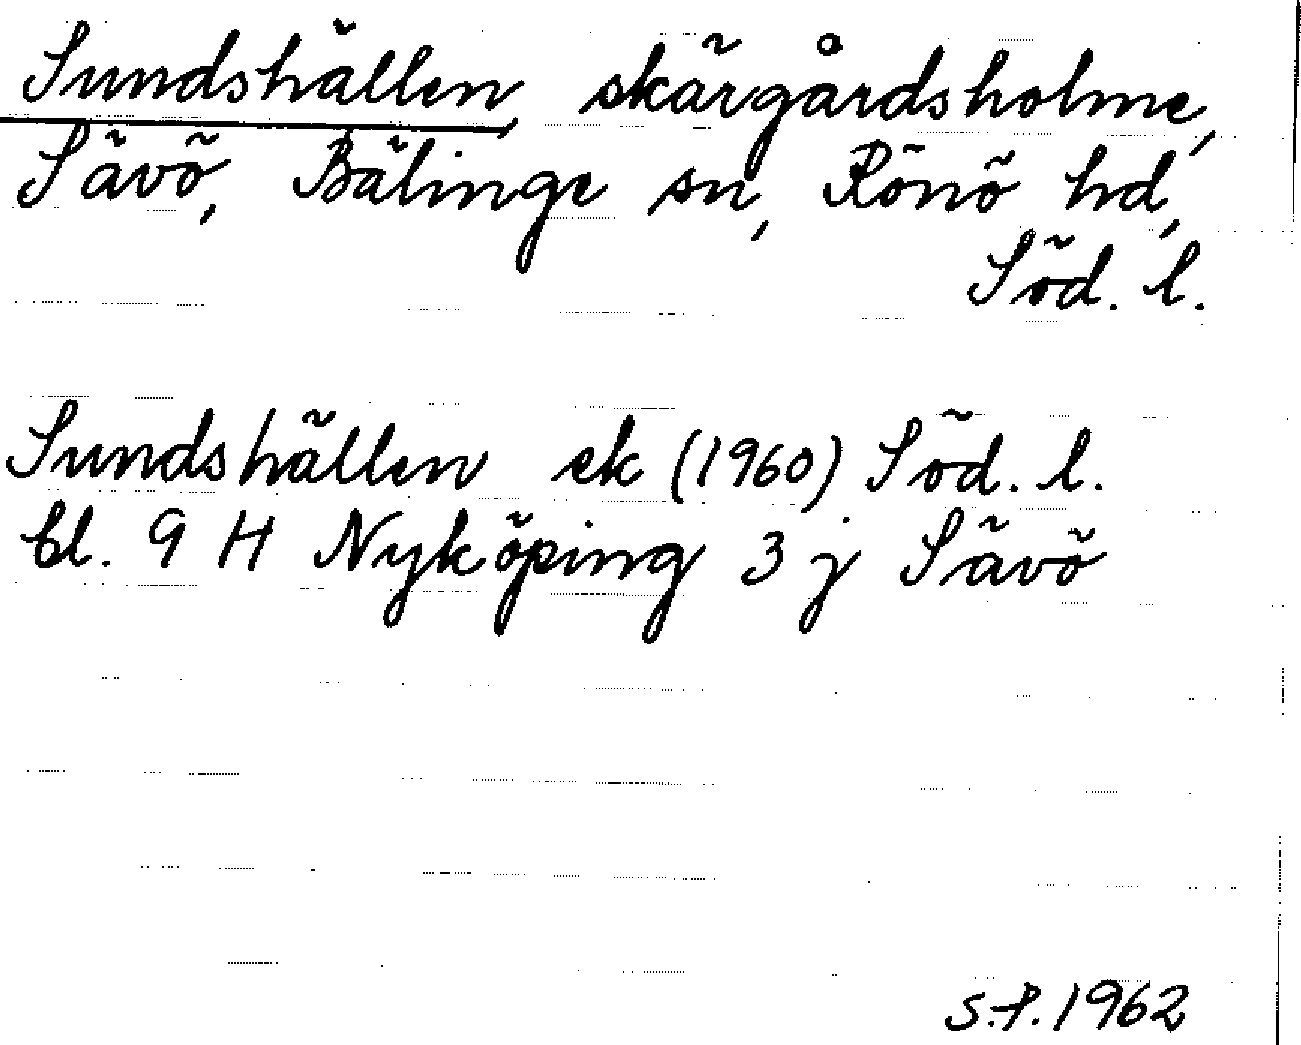 Sundshällen, skärgårdsholme,
Sävö, Bälinge sn, Rönö hd,
Söd. l.
Sundshällen ek (1960) Söd. l.
bl. 9 H Nyköping 3 j Sävö
S.P. 1962